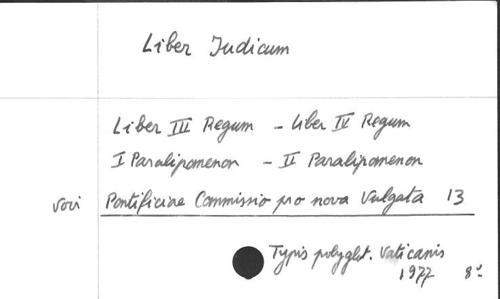 Liber Iudicum
Liber III Regum - Liber IV Regum
I Paralipomenon - II Paralipomenon
Pontificiae Commissio pro nova Vulgata 13
Typis polyglot. Vaticanis
1977 8º